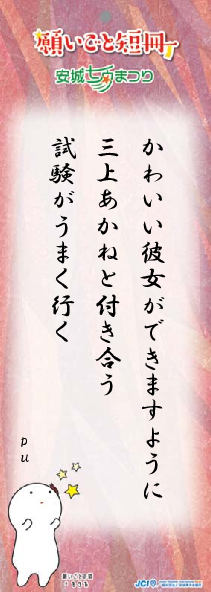 願いごと短冊
安城七夕まつり
かわいい彼女ができますように
三上あかねと付き合う
試験がうまく行く
pu
願いごと短冊
JCI